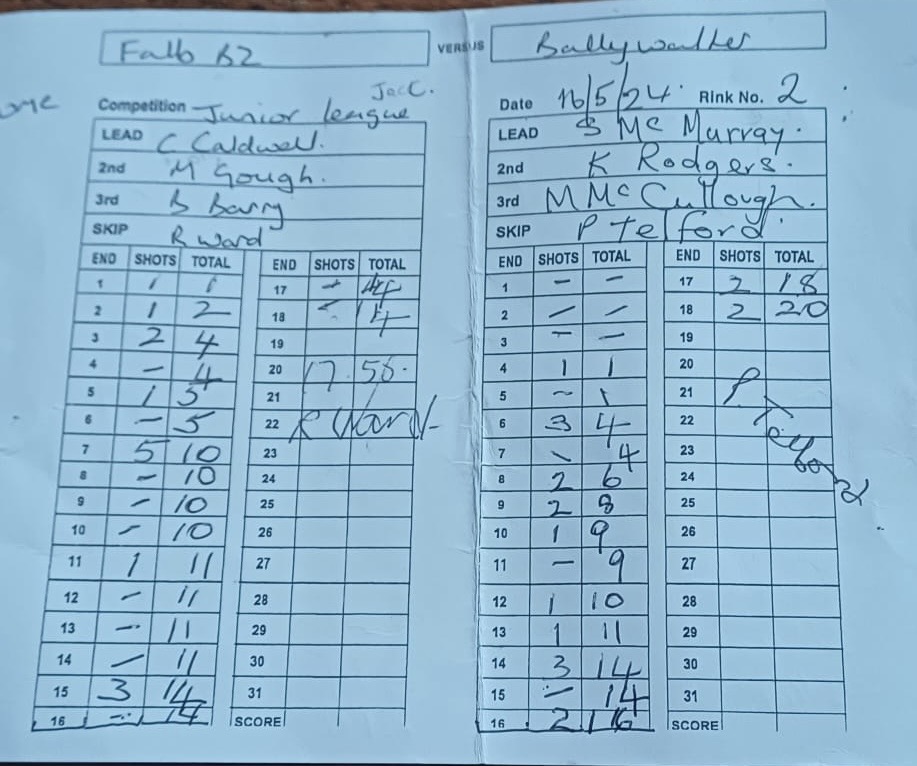 Falls B2
VERSUS
Ballywalter
ome
Competition Junior league
Date 16/5/24 Rink No. 2
LEAD C Caldwell.
2nd M Gough.
3rd B Barry
SKIP R Ward
LEAD S Mc Murray.
2nd K Rodgers.
3rd M McCullough.
SKIP P Telford
END SHOTS TOTAL
1 1 1
2 1 2
3 2 4
4 - 4
5 1 5
6 - 5
7 5 10
8 - 10
9 - 10
10 - 10
11 1 11
12 - 11
13 - 11
14 - 11
15 3 14
16 - 14
END SHOTS TOTAL
17 - 14
18 - 14
19
20 17 58.
21
22 R Ward
23
24
25
26
27
28
29
30
31
SCORE
END SHOTS TOTAL
1 - -
2 - -
3 - -
4 1 1
5 - 1
6 3 4
7 - 4
8 2 6
9 2 8
10 1 9
11 - 9
12 1 10
13 1 11
14 3 14
15 - 14
16 2 16
END SHOTS TOTAL
17 2 18
18 2 20
19
20
21
22
23
24
25
26
27
28
29
30
31
SCORE
P Telford